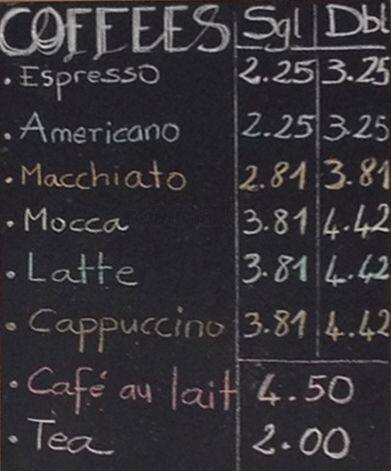 COFFEES Sgl Dbl
· Espresso 2.25 3.25
· Americano 2.25 3.25
· Macchiato 2.81 3.81
· Mocca 3.81 4.42
· Latte 3.81 4.42
· Cappuccino 3.81 4.42
· Café au lait 4.50
· Tea 2.00